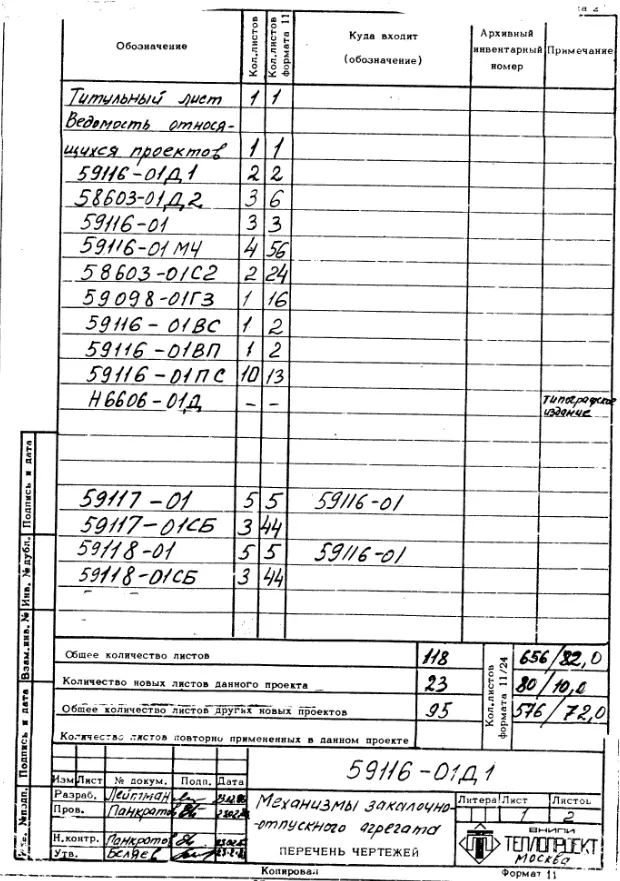 Обозначение Кол.листов Кол.листов формата 11 Куда входит (обозначение) Архивный инвентарный номер Примечание
Титульный лист 1 1
Ведомость относя-
щихся проектов 1 1
59116-01Д1 2 2
58603-01Д2 3 6
59116-01 3 3
59116-01МЧ 4 56
58603-01С2 2 24
59098-01ГЗ 1 16
59116-01ВС 1 2
59116-01ВП 1 2
59116-01ПС 10 13
Н6606-01Д - - типографское
издание
59117-01 5 5 59116-01
59117-01СБ 3 44
59118-01 5 5 59116-01
59118-01СБ 3 44
Общее количество листов 118 Кол.листов формата 11/24 656/82,0
Количество новых листов данного проекта 23 80/10,0
Общее количество листов других новых проектов 95 576/72,0
Количество листов повторно примененных в данном проекте
Подпись и дата
Инв. № дубл.
Взам.инв. №
Подпись и дата
Инв. № подл.
59116-01Д1
Изм Лист № докум. Подп. Дата
Разраб. Лейтман
Пров. Панкратов
Н.контр. Панкратов
Утв. Беляев
Механизмы закалочно-
-отпускного агрегата
ПЕРЕЧЕНЬ ЧЕРТЕЖЕЙ
Литера Лист Листов
1 2
ВНИПИ
ТЕПЛОПРОЕКТ
Москва
Копировал Формат 11